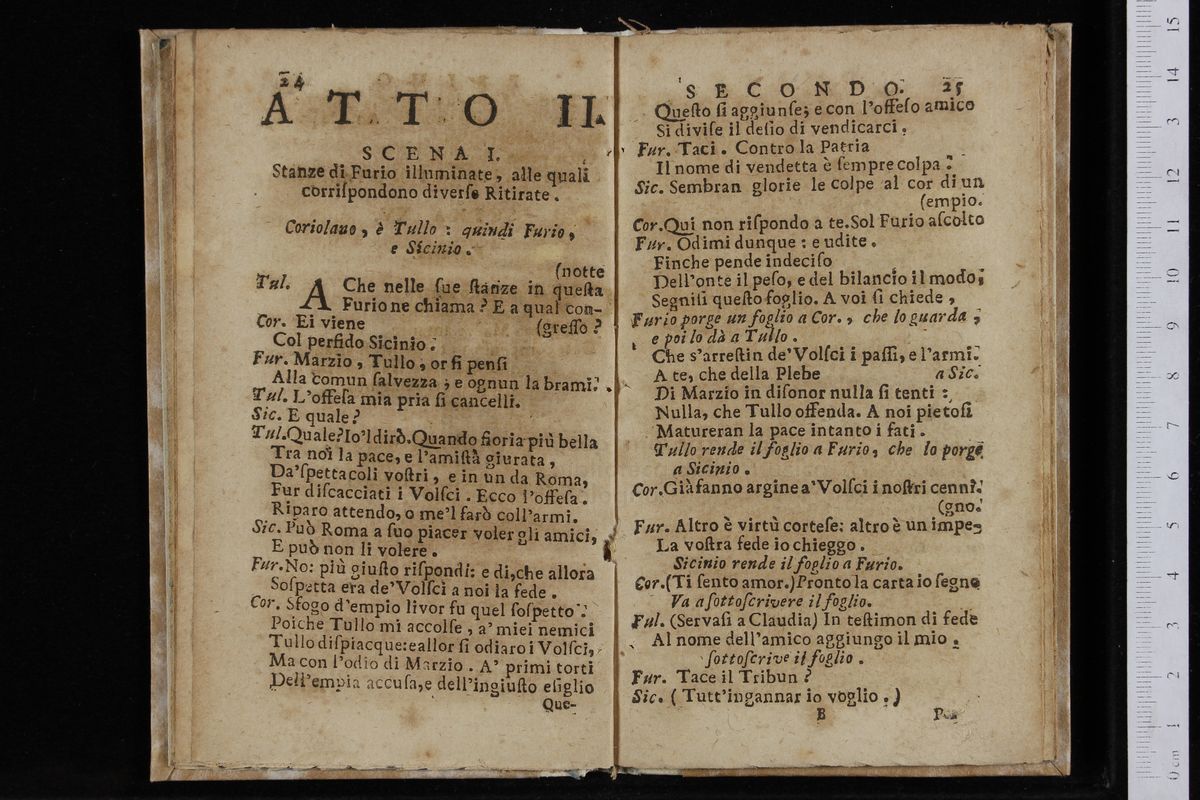 24
ATTO II.
SCENA I.
Stanze di Furio illuminate, alle quali
corriſpondono diverſe Ritirate.
Coriolano, è Tullo : quindi Furio,
e Sicinio.
(notte
Tul. A Che nelle ſue ſtanze in queſta
Furio ne chiama? E a qual con-
Cor. Ei viene (greſſo?
Col perfido Sicinio.
Fur. Marzio, Tullo, or ſi penſi
Alla comun ſalvezza; e ognun la brami.
Tul. L'offeſa mia pria ſi cancelli.
Sic. E quale?
Tul. Quale? Io'l dirò. Quando fioria più bella
Tra noi la pace, e l'amiſtà giurata,
Da'ſpettacoli voſtri, e in un da Roma,
Fur diſcacciati i Volſci. Ecco l'offeſa.
Riparo attendo, o me'l farò coll'armi.
Sic. Può Roma a ſuo piacer voler gli amici,
E può non li volere.
Fur. No: più giuſto riſpondi: e di, che allora
Soſpetta era de'Volſci a noi la fede.
Cor. Sfogo d'empio livor fu quel ſoſpetto.
Poiche Tullo mi accolſe, a' miei nemici
Tullo diſpiacque: e allor ſi odiaro i Volſci,
Ma con l'odio di Marzio. A' primi torti
Dell'empia accuſa, e dell'ingiuſto eſiglio
Que-
SECONDO. 25
Queſto ſi aggiunſe; e con l'offeſo amico
Si diviſe il deſio di vendicarci.
Fur. Taci. Contro la Patria
Il nome di vendetta è ſempre colpa.
Sic. Sembran glorie le colpe al cor di un
(empio.
Cor. Qui non riſpondo a te. Sol Furio aſcolto
Fur. Odimi dunque : e udite.
Finche pende indeciſo
Dell'onte il peſo, e del bilancio il modo;
Segniſi queſto foglio. A voi ſi chiede,
Furio porge un foglio a Cor., che lo guarda,
e poi lo dà a Tullo.
Che s'arreſtin de'Volſci i paſſi, e l'armi.
A te, che della Plebe a Sic.
Di Marzio in diſonor nulla ſi tenti :
Nulla, che Tullo offenda. A noi pietoſi
Matureran la pace intanto i fati.
Tullo rende il foglio a Furio, che lo porge
a Sicinio.
Cor. Già fanno argine a'Volſci i noſtri cenni.
(gno.
Fur. Altro è virtù corteſe: altro è un impe-
La voſtra fede io chieggo.
Sicinio rende il foglio a Furio.
Cor. (Ti ſento amor.) Pronto la carta io ſegno
Va a ſottoſcrivere il foglio.
Ful. (Servaſi a Claudia) In teſtimon di fede
Al nome dell'amico aggiungo il mio.
ſottoſcrive il foglio.
Fur. Tace il Tribun?
Sic. (Tutt'ingannar io voglio.)
B